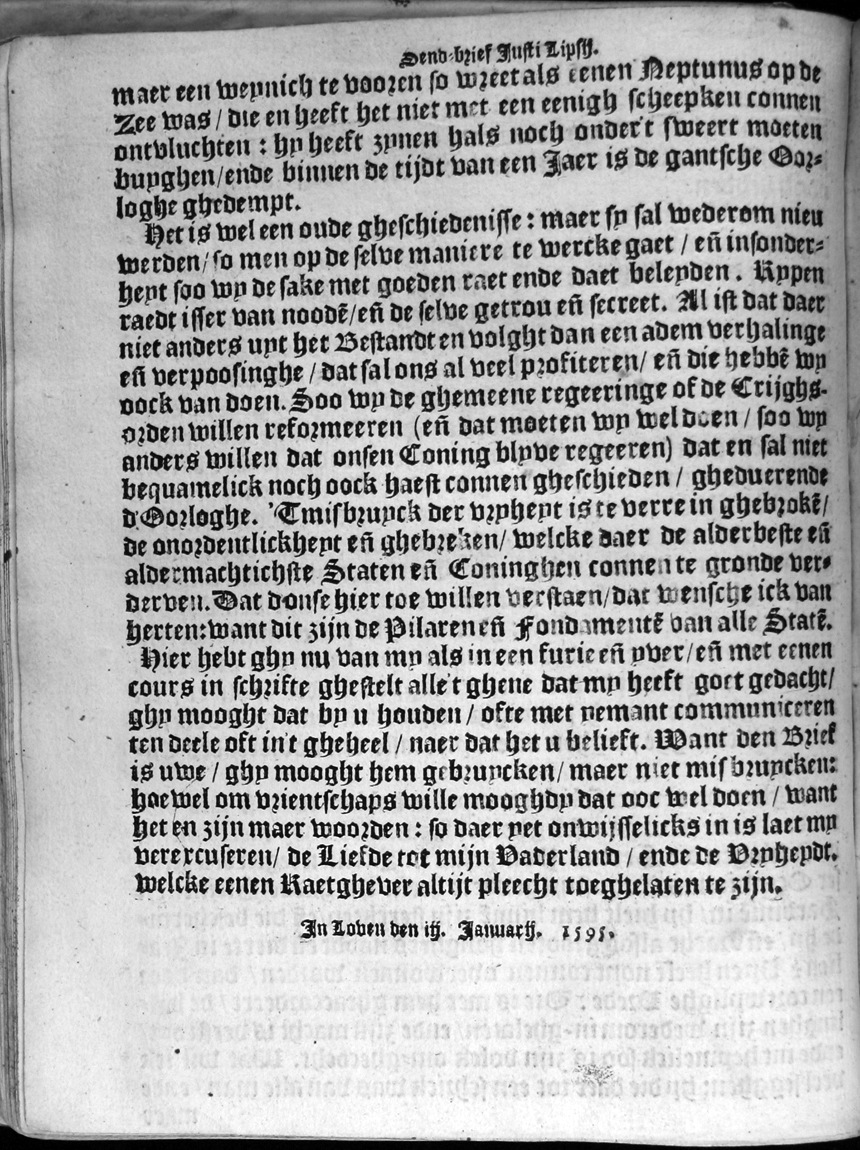 Send-brief Justi Lipsij.
maer een weynich te vooren so wreet als eenen Neptunus op de
Zee was / die en heeft het niet met een eenigh scheepken connen
ontvluchten : hy heeft zynen hals noch onder't sweert moeten
buyghen / ende binnen de tijdt van een Jaer is de gantsche Oor-
loghe ghedempt.
Het is wel een oude gheschiedenisse : maer sy sal wederom nieu
werden / so men op de selve maniere te wercke gaet / eñ insonder-
heyt soo wy de sake met goeden raet ende daet beleyden. Rypen
raedt isser van noodē / eñ de selve getrou eñ secreet. Al ist dat daer
niet anders uyt het Bestandt en volght dan een adem verhalinge
eñ verpoosinghe / dat sal ons al veel profiteren / eñ die hebbē wy
oock van doen. Soo wy de ghemeene regeeringe of de Crijghs-
orden willen reformeeren (eñ dat moeten wy wel doen / soo wy
anders willen dat onsen Coning blyve regeeren) dat en sal niet
bequamelick noch oock haest connen gheschieden / gheduerende
d'Oorloghe. 'Tmisbruyck der vryheyt is te verre in ghebrokē /
de onordentlickheyt eñ ghebreken / welcke daer de alderbeste eñ
aldermachtichste Staten eñ Coninghen connen te gronde ver-
derven. Dat d'onse hier toe willen verstaen / dat wensche ick van
herten: want dit zijn de Pilaren eñ Fondamentē van alle Statē.
Hier hebt ghy nu van my als in een furie eñ yver / eñ met eenen
cours in schrifte ghestelt alle't ghene dat my heeft goet gedacht /
ghy mooght dat by u houden / ofte met yemant communiceren
ten deele oft in't gheheel / naer dat het u belieft. Want den Brief
is uwe / ghy mooght hem gebruycken / maer niet misbruycken:
hoewel om vrientschaps wille mooghdy dat ooc wel doen / want
het en zijn maer woorden : so daer yet onwijsselicks in is laet my
verexcuseren / de Liefde tot mijn Vaderland / ende de Vryheydt.
welcke eenen Raetghever altijt pleecht toeghelaten te zijn.
In Loven den iij. Januarij. 1595.